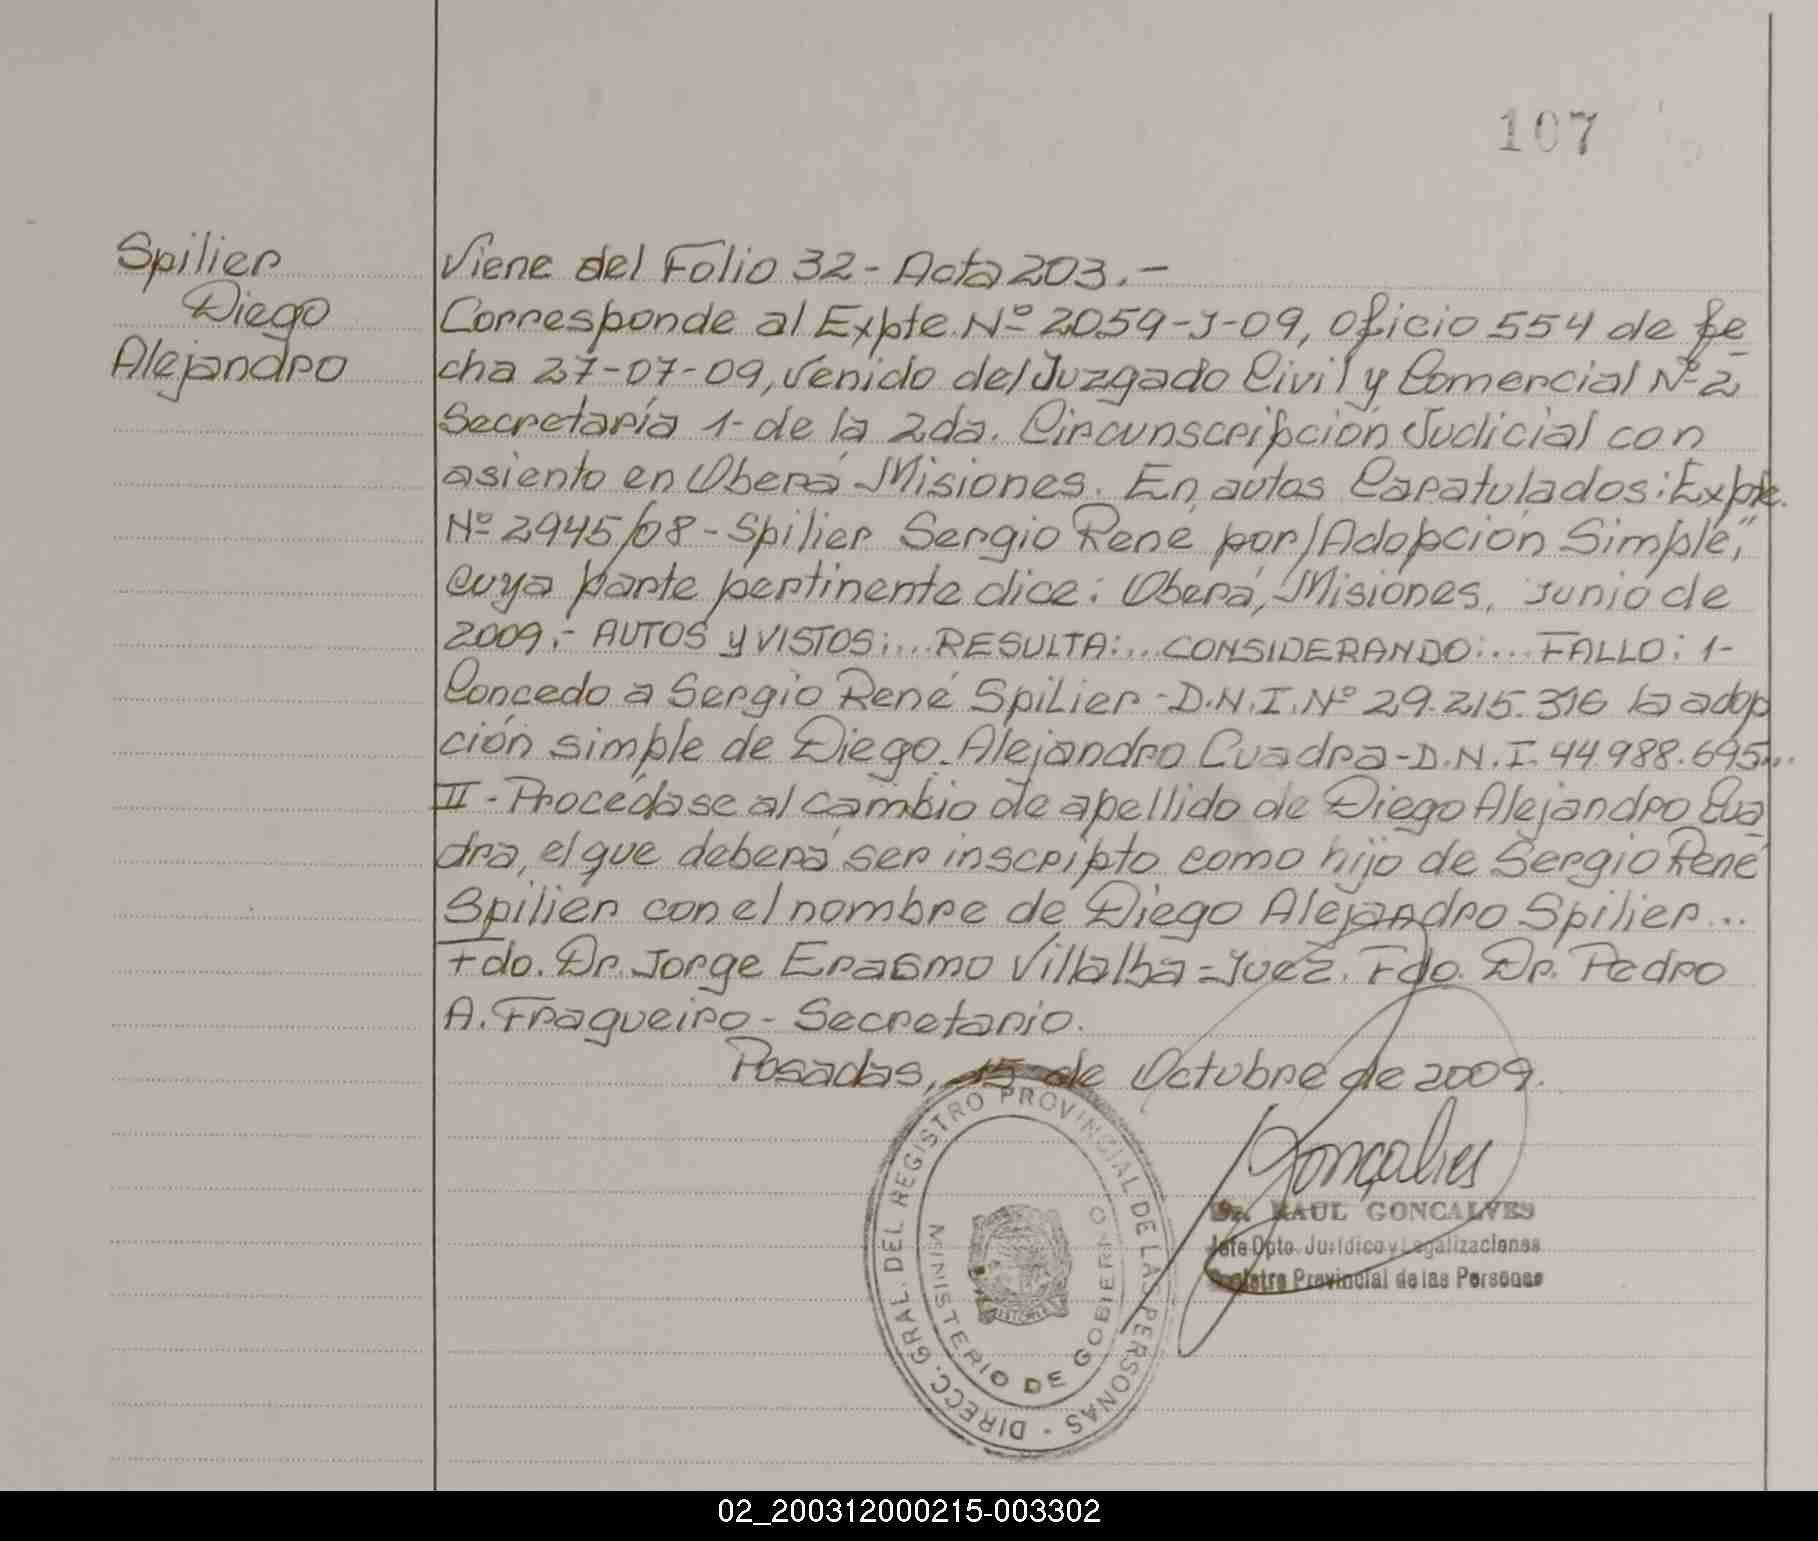 107
Spilier
Diego
Alejandro
Viene del Folio 32 - Acta 203.-
Corresponde al Expte. Nº 2059-J-09, oficio 554 de fe
cha 27-07-09, venido del Juzgado Civil y Comercial Nº 2
Secretaría 1- de la 2da. Circunscripción Judicial con
asiento en Oberá Misiones. En autos Caratulados: Expte.
Nº 2945/08 - Spilier Sergio René por/Adopción Simple",
cuya parte pertinente dice: Oberá, Misiones, Junio de
2009.- AUTOS y VISTOS:... RESULTA:... CONSIDERANDO:... FALLO: 1-
Concedo a Sergio René Spilier - D.N.I. Nº 29.215.316 la adop
ción simple de Diego Alejandro Cuadra - D.N.I. 44.988.695...
II - Procédase al cambio de apellido de Diego Alejandro Cua
dra, el que deberá ser inscripto como hijo de Sergio René
Spilier con el nombre de Diego Alejandro Spilier...
Fdo. Dr. Jorge Erasmo Villalba - Juez. Fdo. Dr. Pedro
A. Fragueiro - Secretario.
Posadas, 15 de Octubre de 2009.
DIRECC. GRAL. DEL REGISTRO PROVINCIAL DE LAS PERSONAS -
MINISTERIO DE GOBIERNO
Gonçalves
Dr. RAUL GONCALVES
Jefe Dpto. Jurídico y Legalizaciones
Registro Provincial de las Personas
02_200312000215-003302